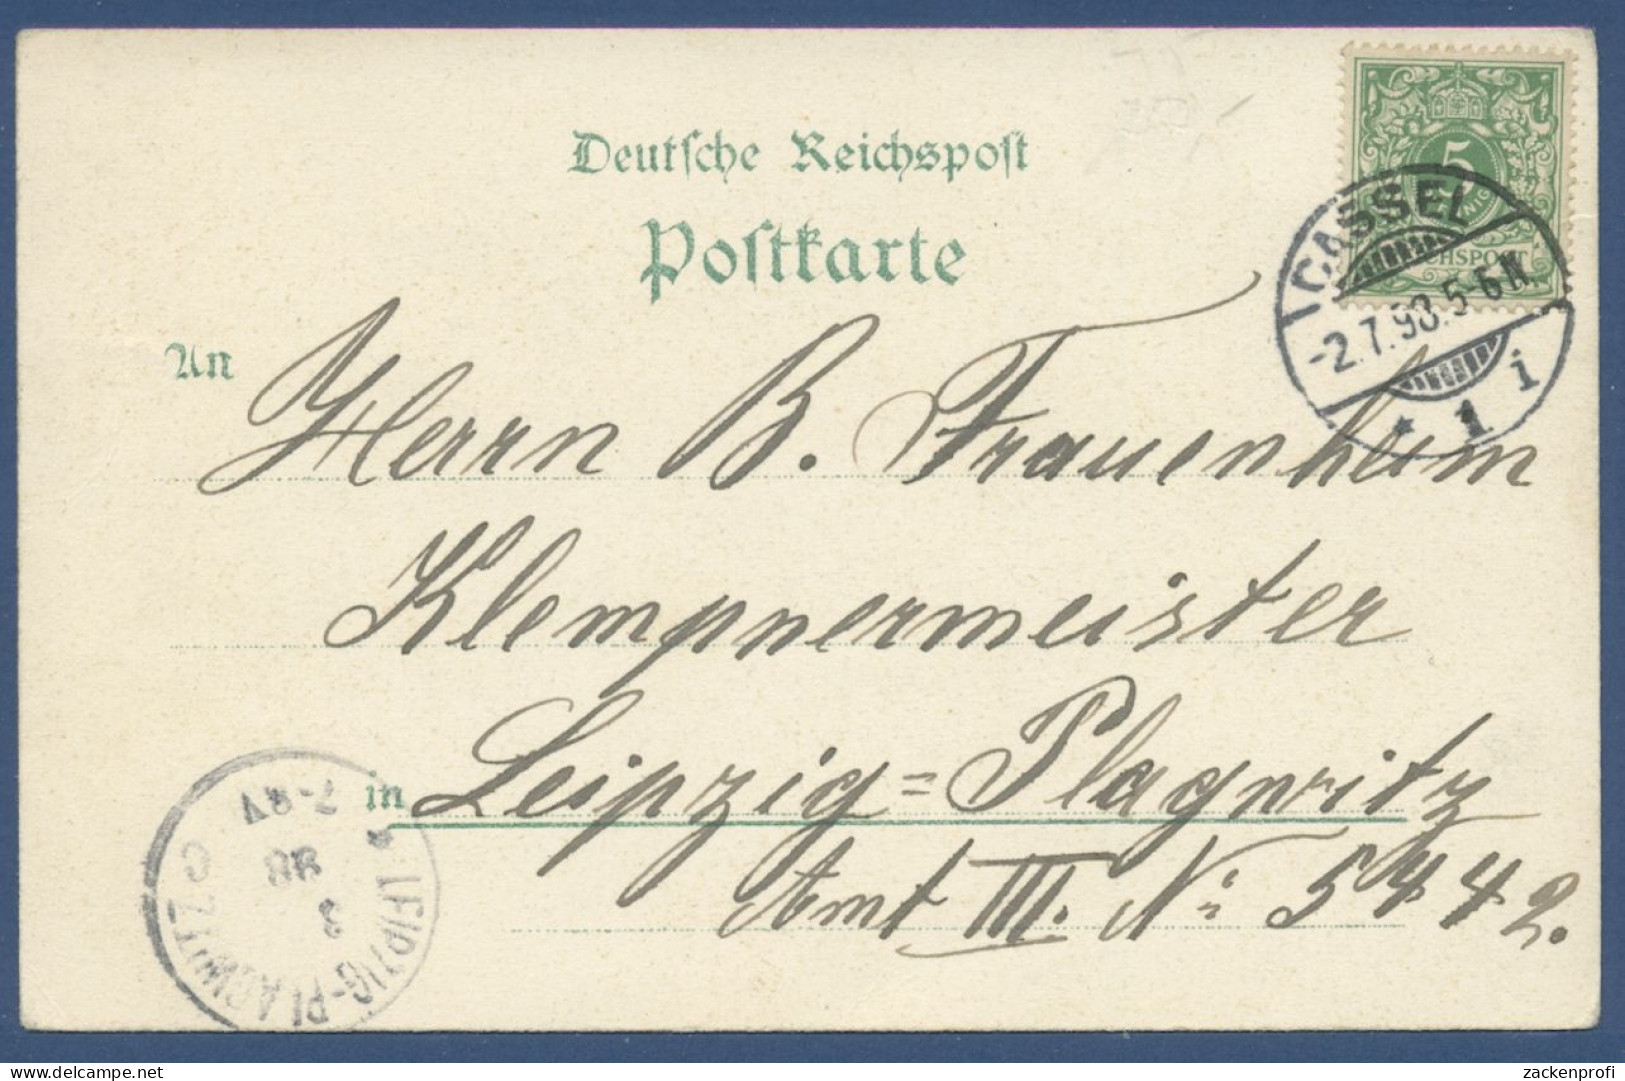 Deutsche Reichspost
Postkarte
5
CASSEL
REICHSPOST
-2.7.98.5-6N.
* 1 i
An Herrn B. Frauenheim
Klempnermeister
in Leipzig=Plagwitz
Amt III. No: 5442.
* LEIPZIG-PLAGWITZ
3
98
7-8V
delcampe.net
zackenprofi